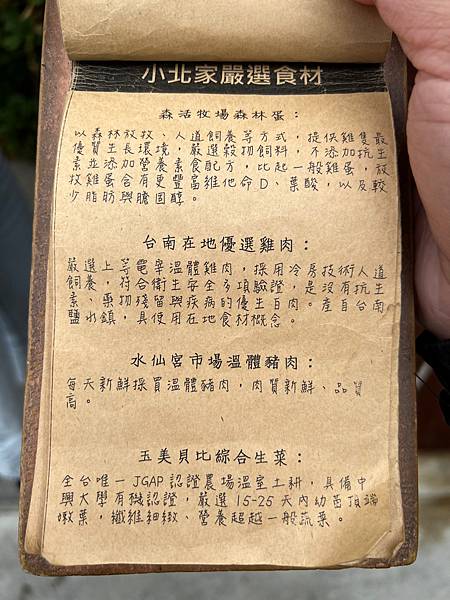 小北家嚴選食材
森活牧場森林蛋：
以森林放牧、人道飼養等方式，提供雞隻最
優質生長環境，嚴選穀物飼料，不添加抗生
素並添加營養素食配方，比起一般雞蛋，放
牧雞蛋含有更豐富維他命D、葉酸，以及較
少脂肪與膽固醇。
台南在地優選雞肉：
嚴選上等電宰溫體雞肉，採用冷房技術人道
飼養，符合衛生安全多項驗證，是沒有抗生
素、藥物殘留與疾病的優生白肉。產自台南
鹽水鎮，具使用在地食材概念。
水仙宮市場溫體豬肉：
每天新鮮採買溫體豬肉，肉質新鮮、品質
高。
五美貝比綜合生菜：
全台唯一JGAP認證農場溫室土耕，具備中
興大學有機認證，嚴選15-25天內幼苗頂端
嫩葉，纖維細緻、營養超越一般蔬菜。